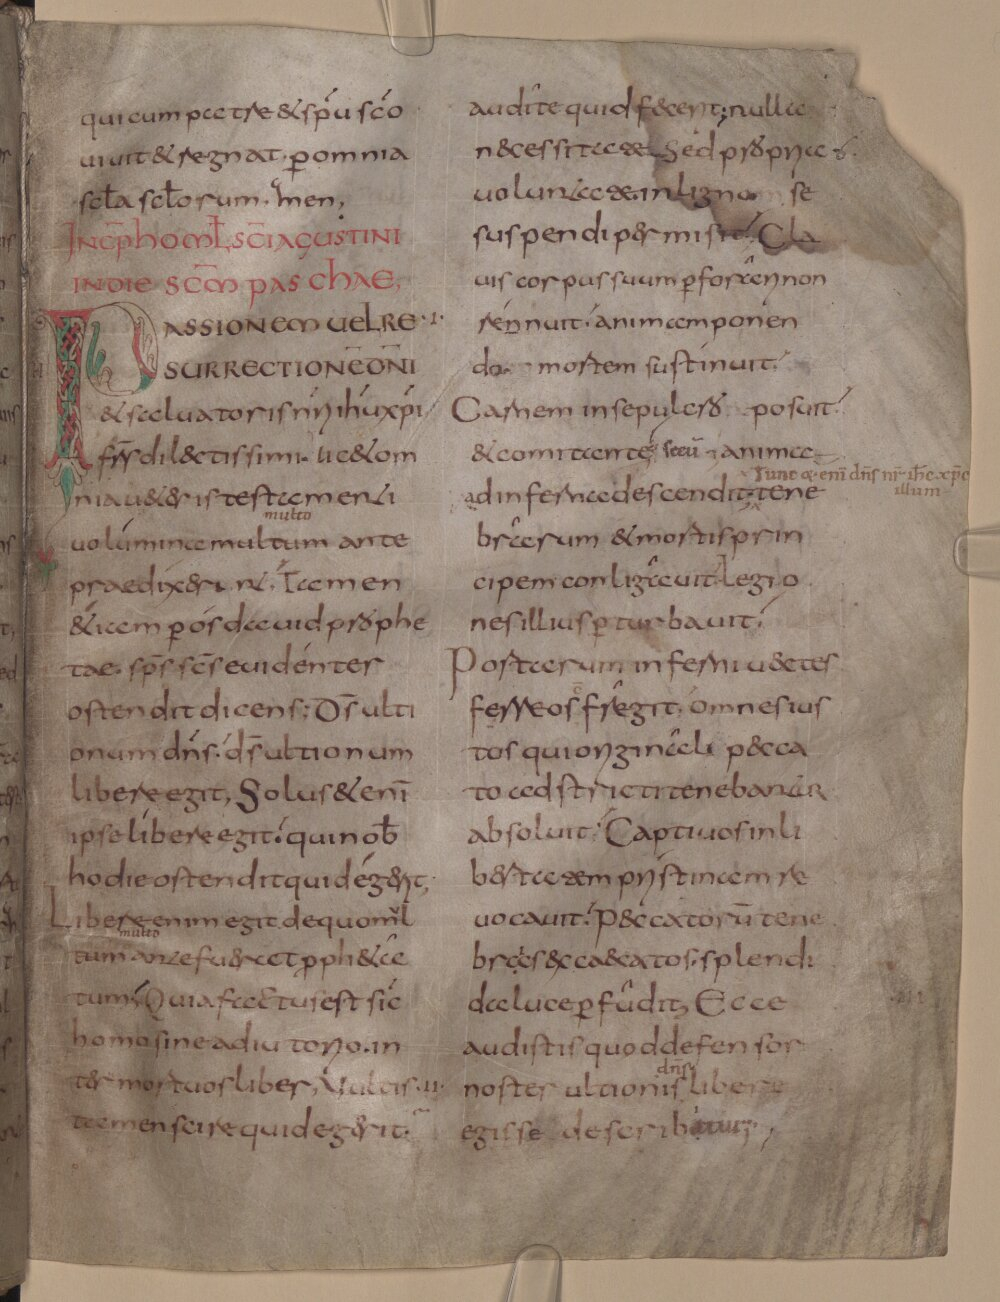 qui cum patre & spu sco
uiuit & regnat, p omnia
scla sclorum. Amen;
INCP HOML SCI AGUSTINI
IN DIE SCM PASCHAE,
PASSIONEM UEL RE ·I·
SURRECTIONE DNI
& saluatoris nri ihu xpi
frs dilectissimi. lic& om
nia u&eris testamenti
multo
uolumina multum ante
praedixeri nt. Tamen
& iam p os dauid prophe
tae. sps scs euidenter
ostendit dicens: Ds ulti
onum dns. ds ultionum
libere egit, Solus & eni
ipse libere egit: qui nob
hodie ostendit quid egerit,
Libere enim egit de quo ml
multo
tum ante fuerat pph&a
tum; Quia factus est sic
homo sine adiutorio. in
ter mortuos liber, Vultis ·II·
tamen scire quid egerit:
audite quid fecerit; nulla
necessitate Sed propria
uoluntate. in ligno se
suspendi permisit: Cla
uis corpus suum pforari non
rennuit: animam ponen
do mortem sustinuit:
Carnem in sepulcro posuit:
& comitante secu anima
Tunc & eni dns nr ihc xpc
illum
ad inferna descendit; tene
brarum & mortis prin
cipem conligauit Legio
nes illius pturbauit:
Portarum inferni uectes
ferreos fregit. omnes ius
tos qui originali pecca
to adstricti tenebantur
absoluit: Captiuos in li
bertatem pristinam re
uocauit: Peccatoru tene
bras excaecatos. splendi
da luce pfudit; Ecce
audistis quod defensor
dns
noster ultionis libere
egisse describitur;